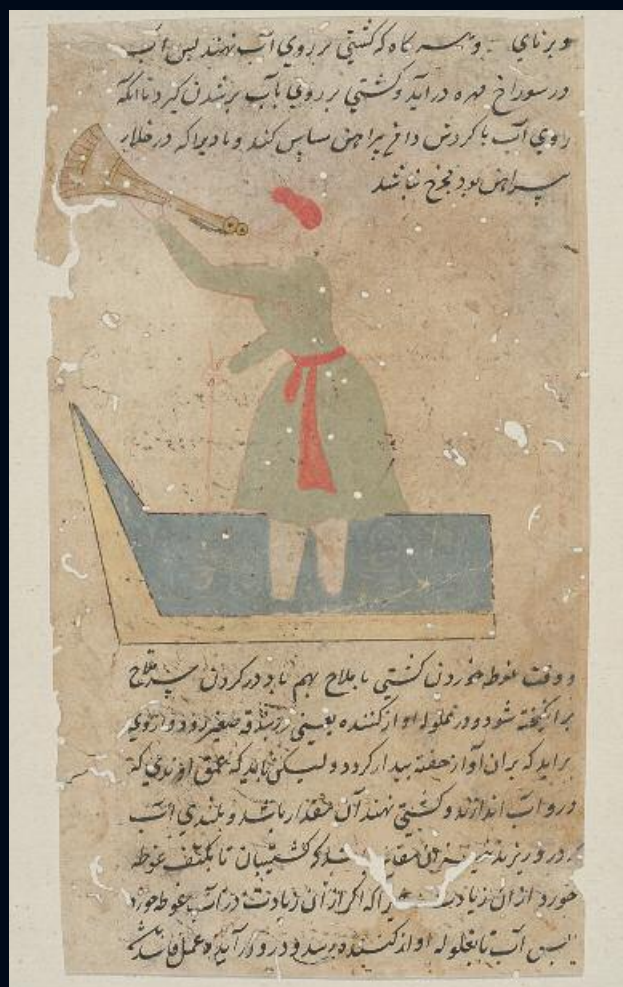 و برنای و هر گاه که کشتی بر روی آب نهند پس آب
در سوراخ مهره در آید و کشتی بر روی باب پر شدن گیرد تا آنکه
روی آب با کردن داغ پیراهن ساس کند و بادیرا که در خلال
پیراهن بود مخرج نباشد
و وقت غوطه خوردن کشتی با ملاح بهم باد در کردن ملاح
برانگیخته شود و در غلوله اواز کننده یعنی بندقه صغیر رود و از وی
براید که بران آواز خفته بیدار کردد و لیکن باید که عمق
درو آب اندازند و کشتی نهند آن مقدار باشد و بلندی آب
که درو ریزند مقدار که کشتیبان تا بکتف غوطه
خورد از ان زیادت که اکر از آن زیادت در آب غوطه خورد
پس آب تا بغلوله اواز کننده برسد و درو در آید و عمل فاسد شود